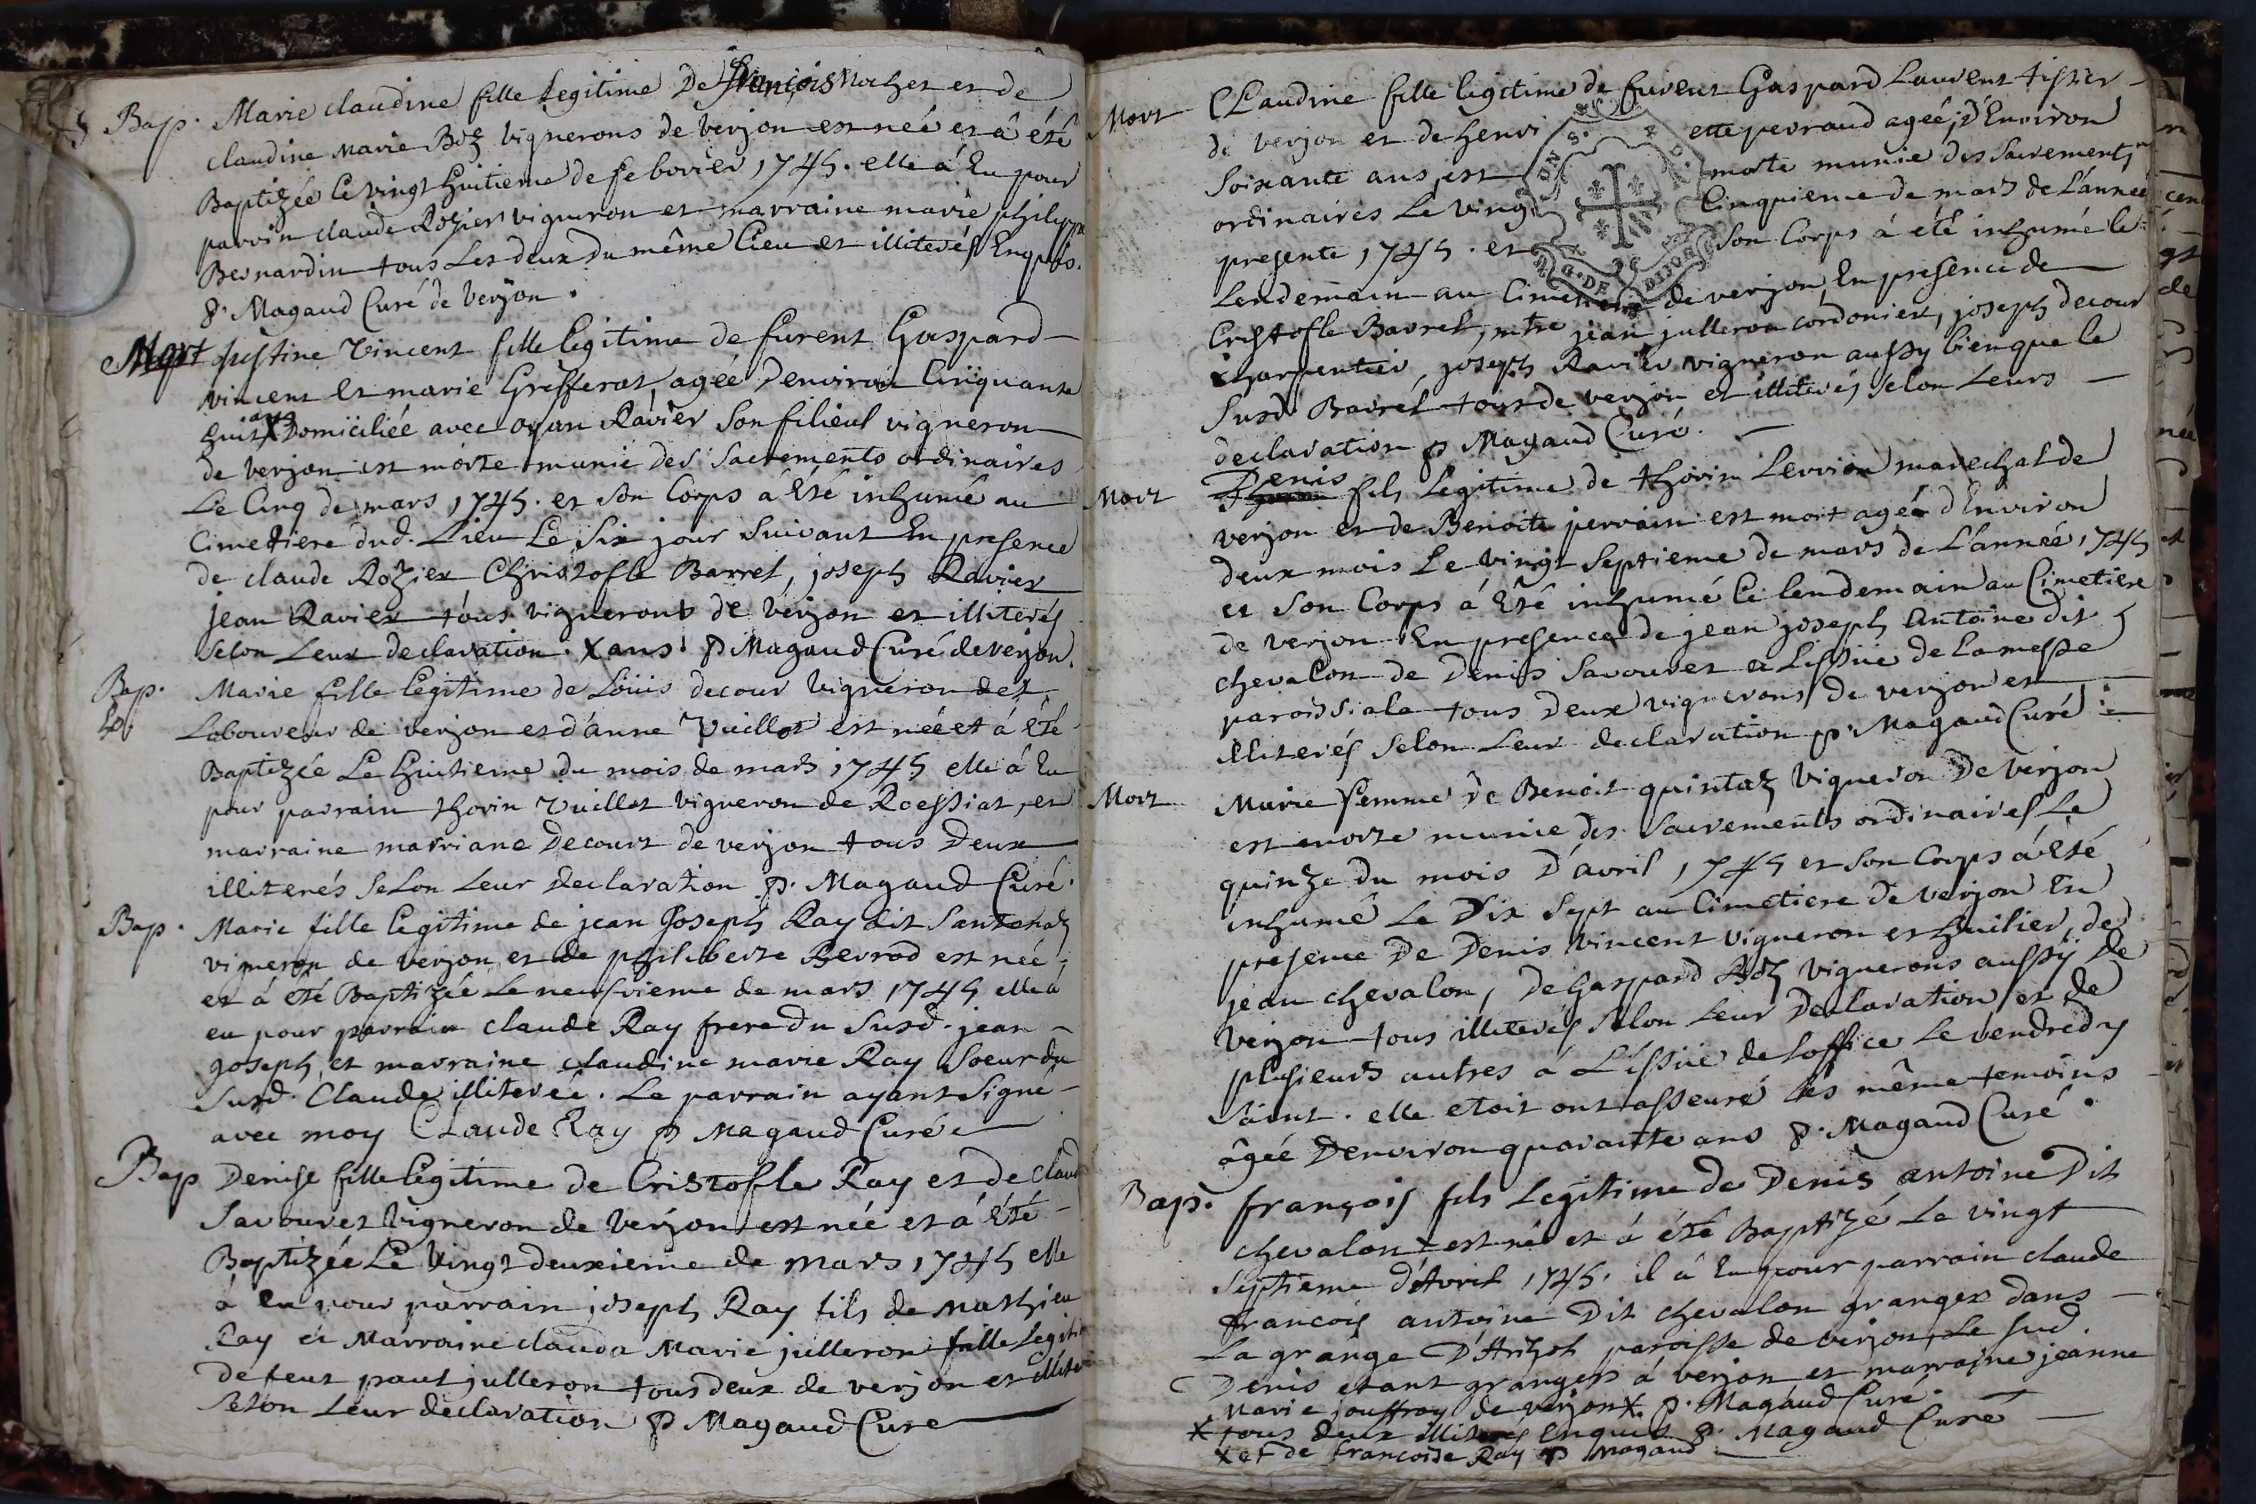 Bap. Marie claudine fille Legitime De françois Rochet et de
claudine marie Boz vignerons de verjon est neé et â été
Baptizée le vingt huitieme de febvrier 1745. elle á Eu pour
parrin claude Rozier vigneron et marraine marie philippe
Bernardin tous Les deux du même lieu et illiterés Enquis.
P. Magaud Curé de verjon.
Mort justine Vincent fille legitime de furent Gaspard
vincent et marie Grefferat, agée d'environ Cinquante
huit X ans Domiciliée avec Ravier son filieul vigneron
de verjon est morte munie des Sacrements ordinaires
Le Cinq de mars 1745. et son Corps á Eté inhumé au
Cimetiere dud. Lieu Le Six jour Suivant En presence
de claude Rozier Christofle Barret, joseph Ravier
jean Ravier tous vignerons de verjon et illiterés
selon Leur declaration. X ans P Magaud Curé de verjon.
Bap. Marie fille legitime de Loüis decour vigneron et
Laboureur de verjon et d'anne Vuillot est née et á Eté
Baptizée Le huitieme du mois de mars 1745 elle á Eu
pour parrain thorin Vuillot vigneron de Roessiat, et
marraine marriane Decourt de verjon tous Deux
illiterés selon Leur declaration P. Magaud Curé.
Bap. Marie fille legitime de jean joseph Ray dit Santonaz
vigneron de verjon et de philiberte Berrod est neé
et á eté Baptizée Le neufvieme de mars 1745 elle á
eu pour parrain claude Ray frere du susd. jean
joseph, et marraine claudine marie Ray Soeur du
Susd. Claude illiterée. Le parrain ayant signé
avec moy Claude Ray P Magaud Curé
Bap Denise fille legitime de Cristofle Ray et de Claud
Savouret vigneron de verjon est née et á Eté
Baptizée Le vingt deuxieme de mars 1745 elle
á Eu pour parrain joseph Ray fils de mathieu
Ray et Marraine clauda Marie julleron fille Legiti
de feut paul julleron tous deux de verjon et illiter
selon Leur declaration P Magaud Cure
Mort Claudine fille legitime de furent Gaspard Laurent tissier
de verjon et de henri ette pevraud ageé, D'Environ
soixante ans, est morte munie des Sacrements
ordinaires Le ving Cinquieme de mars de L'anneé
presente 1745. et son Corps á été inhumé le
Lendemain au Cimetiere de verjon En presence de
Cristofle Barret, mtre jean julleron cordonier, joseph decour
charpentier, joseph Ravier vigneron aussy bien que le
Susd. Barret tous de verjon et illiterés selon Leurs
declaration P Magaud Curé.
Mort Denis fils Legitime de thorin Levrion marechal de
verjon et de Benoite pervain est mort agé d'Environ
deux mois Le vingt Septieme de mars de L'année 1745
et son Corps á Eté inhumé Le lendemain au Cimetiere
de verjon En presence de jean joseph Antoine dit
chevalon de Denis Savouret a L'issüe de la messe
paroissiale tous Deux vignerons de verjon et
illiterés selon Leur declaration P. Magaud Curé
Mort Marie femme de Benoit quintaz vigneron De verjon
est morte munie des Sacrements ordinaires Le
quinze du mois D'avril 1745 et son Corps á Eté
inhumé Le Dix Sept au Cimetiere de verjon En
presence De Denis vincent vigneron et huilier, de
jean chevalon, De Gaspard Boz vignerons aussÿ de
verjon tous illiterés selon Leur Declaration et de
plusieurs autres á L'issüe de L'office Le vendredy
saint. elle etoit ont asseuré les même temoins
âgée D'environ quarante ans P. Magaud Curé.
Bap. françois fils Legitime de Denis antoine Dit
chevalon X est né et á été Baptizé Le vingt
septieme d'Avril 1745. il á Eu pour parrain claude
françois antoine Dit chevalon granger dans
La grange D'Arizol paroisse de verjon, Le sud.
Denis etant granger á verjon et marraine jeanne
Marie jouffroy de verjon X. P. Magaud Curé.
X tous deux illiterés Enquis P. Magaud Curé
X et de francoise Ray P Magaud